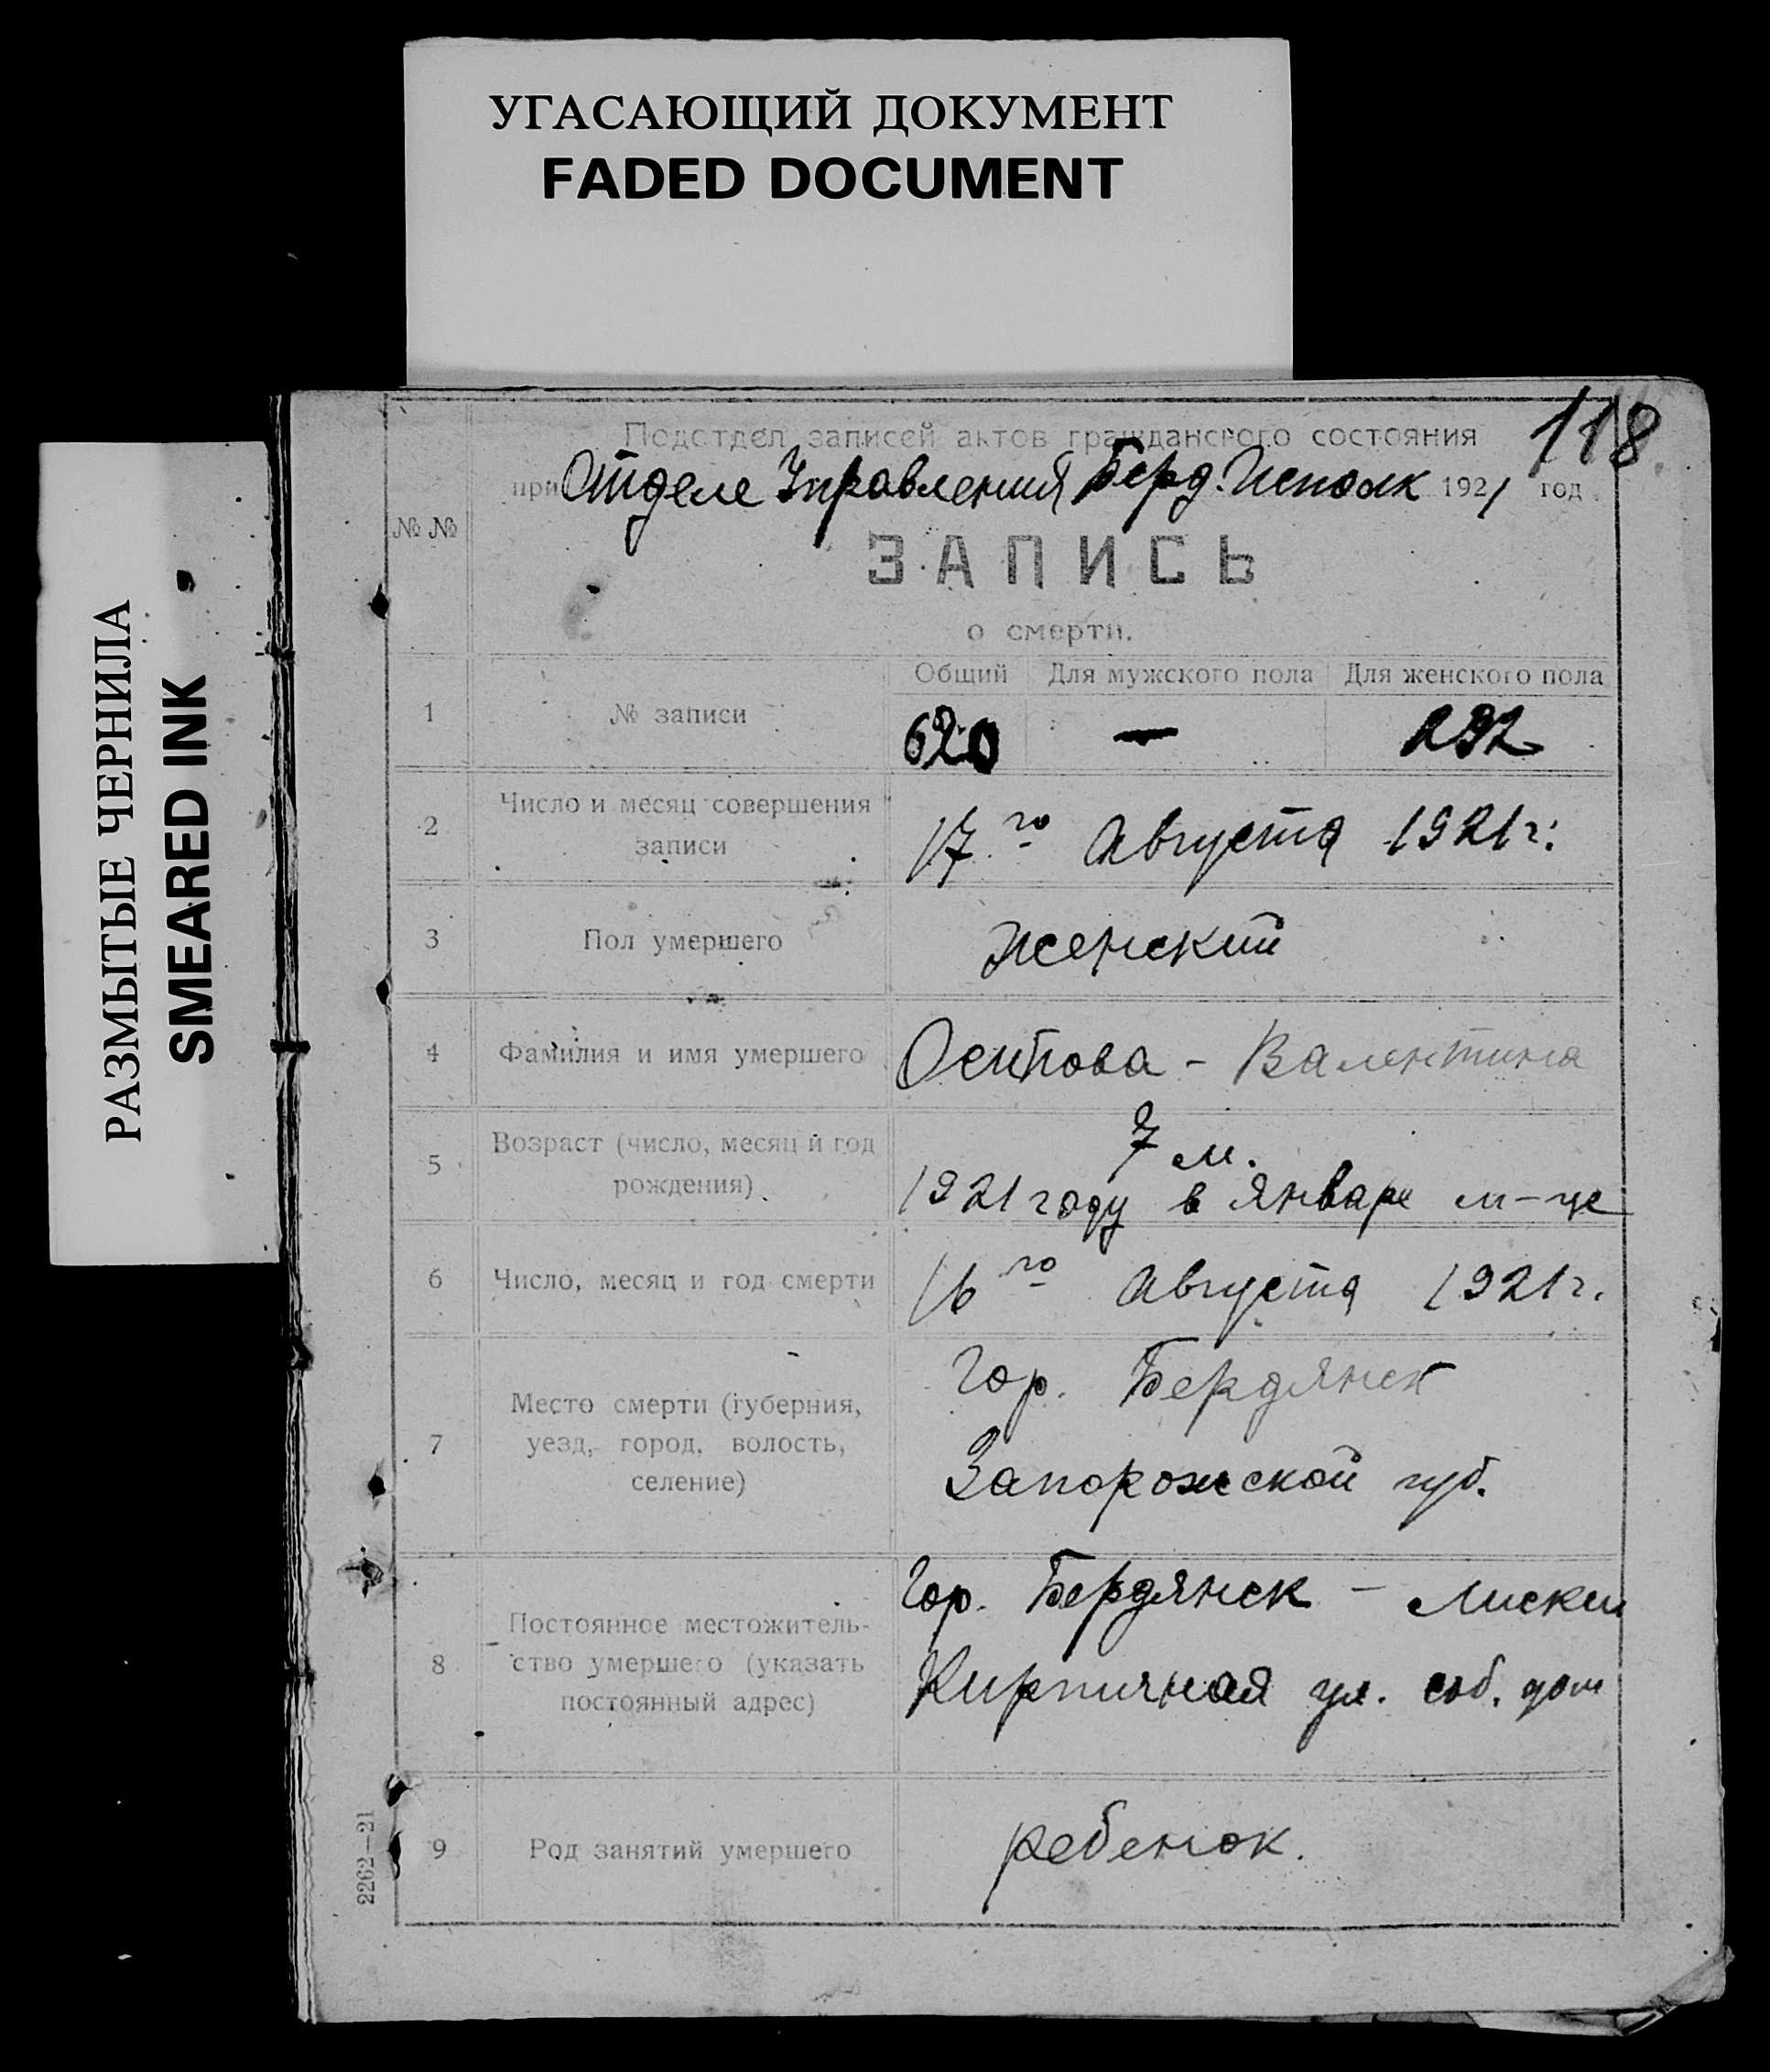 УГАСАЮЩИЙ ДОКУМЕНТ
FADED DOCUMENT
РАЗМЫТЫЕ ЧЕРНИЛА
SMEARED INK
118
Подотдел записей актов гражданского состояния
при Отделе Управления Берд. Исполк 1921 год
№ №
ЗАПИСЬ
о смерти.
Общий Для мужского пола Для женского пола
1 № записи 620 — 292
2 Число и месяц совершения
записи 17го Августа 1921 г.
3 Пол умершего Женский
4 Фамилия и имя умершего Осипова - Валентина
5 Возраст (число, месяц и год
рождения)
7 м.
1921 году в январе м-це
6 Число, месяц и год смерти 16го Августа 1921 г.
7 Место смерти (губерния,
уезд, город, волость,
селение)
Гор. Бердянск
Запорожской губ.
8 Постоянное местожитель-
ство умершего (указать
постоянный адрес)
Гор. Бердянск - Лиски
Кирпичная ул. соб. дом
9 Род занятий умершего ребенок.
2262—21